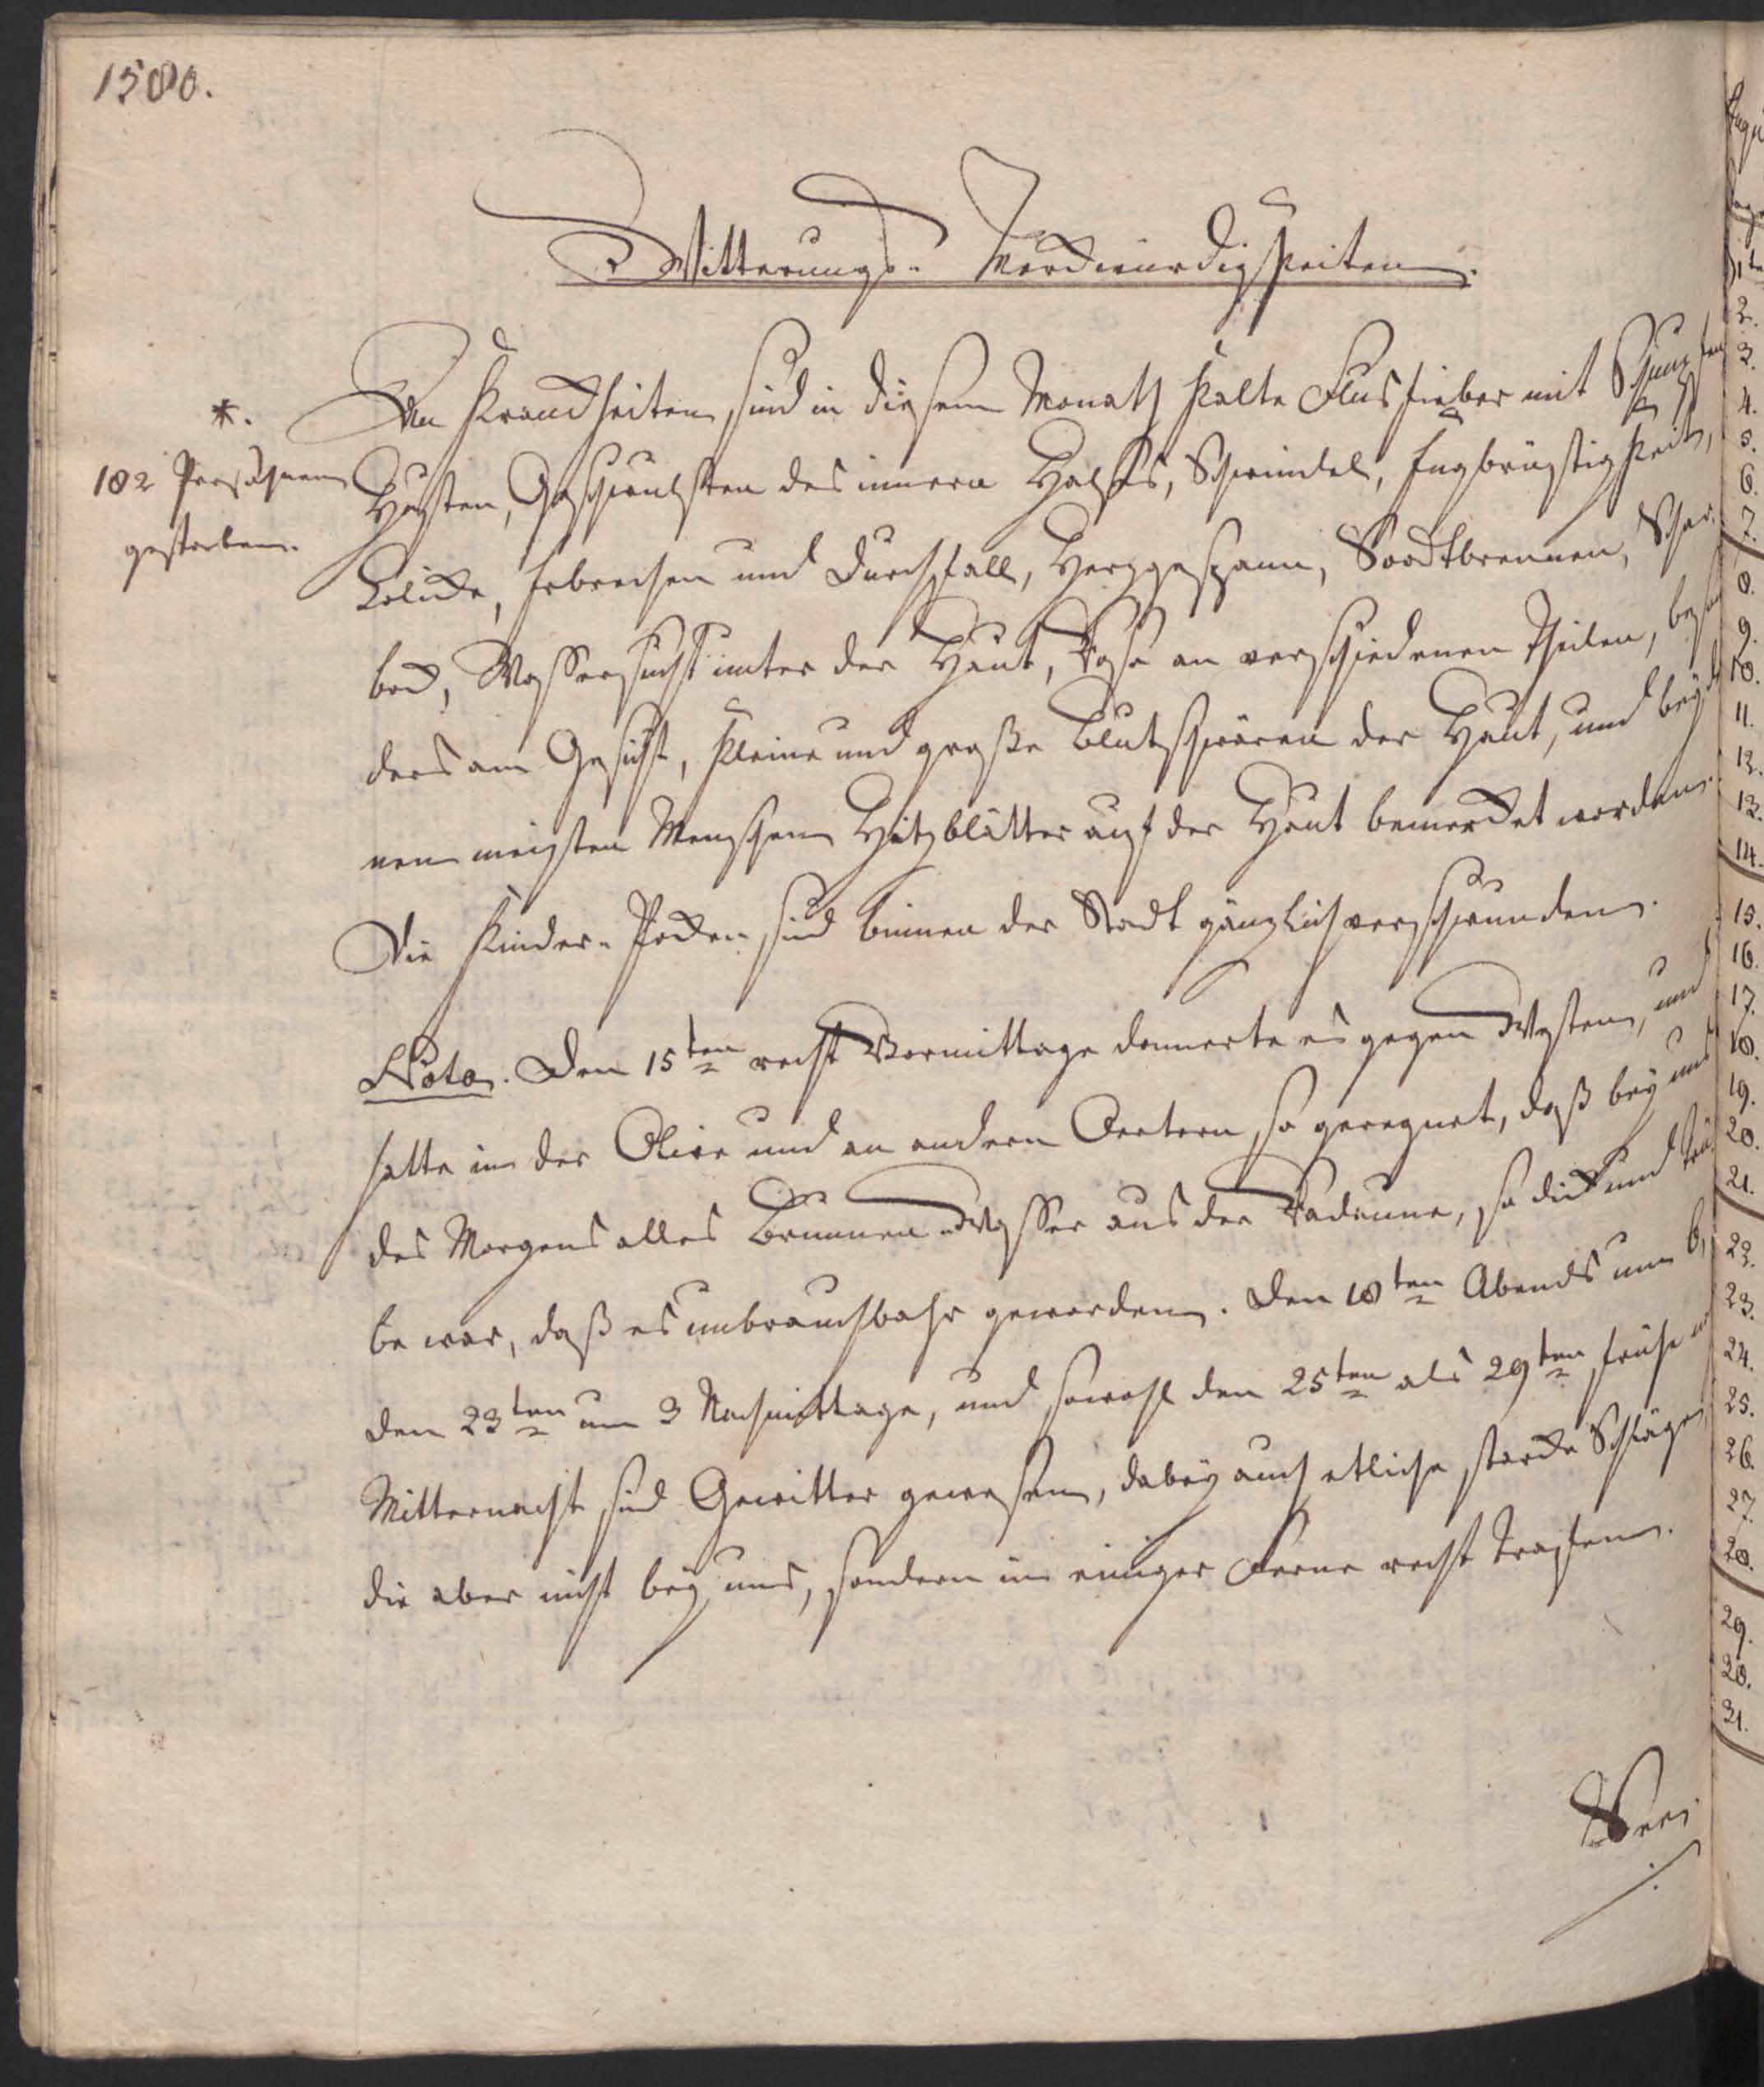 1580.
Witterungs- Merckwürdigkeiten.
*.
182 Persohnen
gestorben.
An Kranckheiten sind in diesem Monath kalte Flusfieber mit Schnupfen
Husten, Geschwulsten des innern Halses, Schwindel, Engbrüstigkeit,
Colicke, Erbrechen und Durchfall, Herzgespann, Soodtbrennen, Schar-
bock, Wassersucht unter der Haut, Rose an verschiedenen Theilen, beson
ders am Gesicht, kleine und große Blutschwären der Haut, und bey de
nen meisten Menschen Hitzblätter auf der Haut bemercket worden.
Die Kinder-Pocken sind binnen der Stadt gänzlich verschwunden.
Nota. Den 15ten recht Vormittage donnerte es gegen Westen, und
hatte in der Olive und an andern Oertern so geregnet, daß bey uns
des Morgens alles Brunnen-Wasser aus der Radaune, so dick und trü-
be war, daß es unbrauchbahr geworden. Den 18ten Abends um 6,
den 23ten um 3 Nachmittage, und sowohl den 25ten als 29ten frühe
Mitternacht sind Gewitter gewesen, dabey auch etliche starcke Schläge,
die aber nicht bey uns, sondern in einiger Ferne recht trafen.
2.
3.
4.
5.
6.
7.
8.
9.
10.
11.
12.
13.
14.
15.
16.
17.
18.
19.
20.
21.
22.
23.
24.
25.
26.
27.
28.
29.
30.
31.